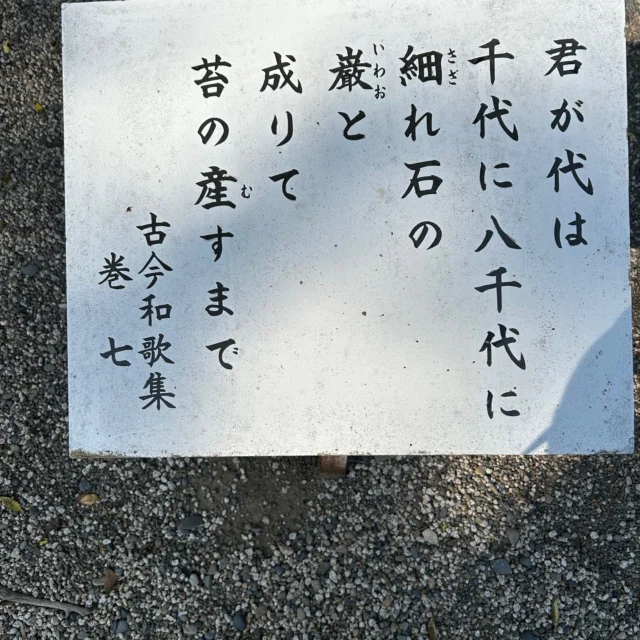 君が代は
千代に八千代に
細れ石の
巌と
成りて
苔の産すまで
古今和歌集
巻七
さざ
いわお
む